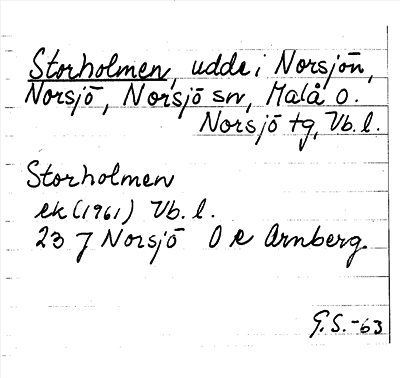 Storholmen, udde i Norsjön,
Norsjö, Norsjö sn, Malå o.
Norsjö tg, Vb. l.
Storholmen
ek (1961) Vb. l.
23 J Norsjö O e Arnberg.
G.S.-63